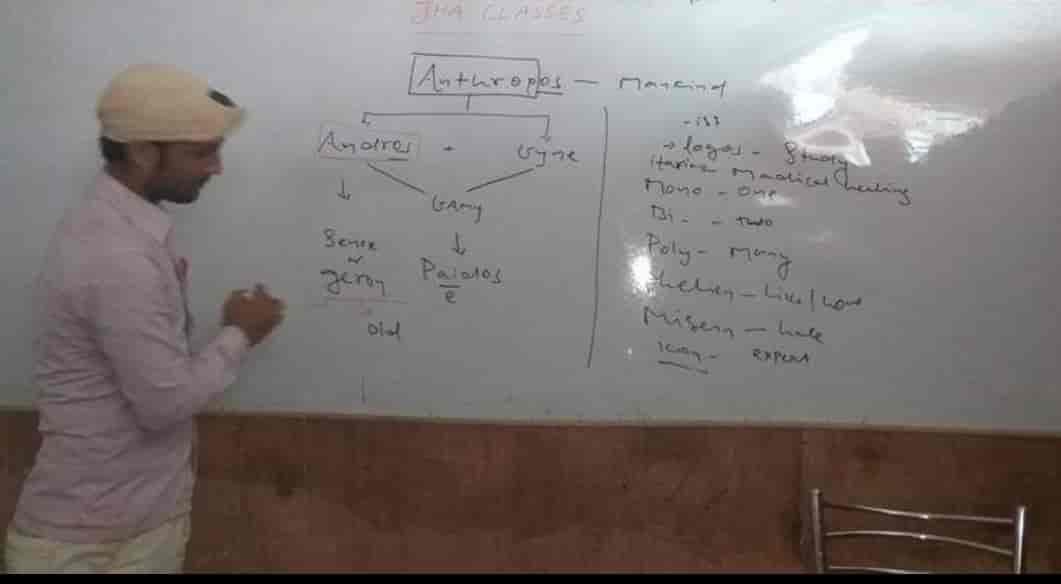 JHA CLASSES
Anthropos — Mankind
Andros + Gyne
Gamy
- ist
→ logos - Study
Medical healing
Mono - One
Bi - - two
Poly - Many
Philein - like/love
Misein - hate
Icon - expert
Senex
or
geron
Paiatos
e
Old